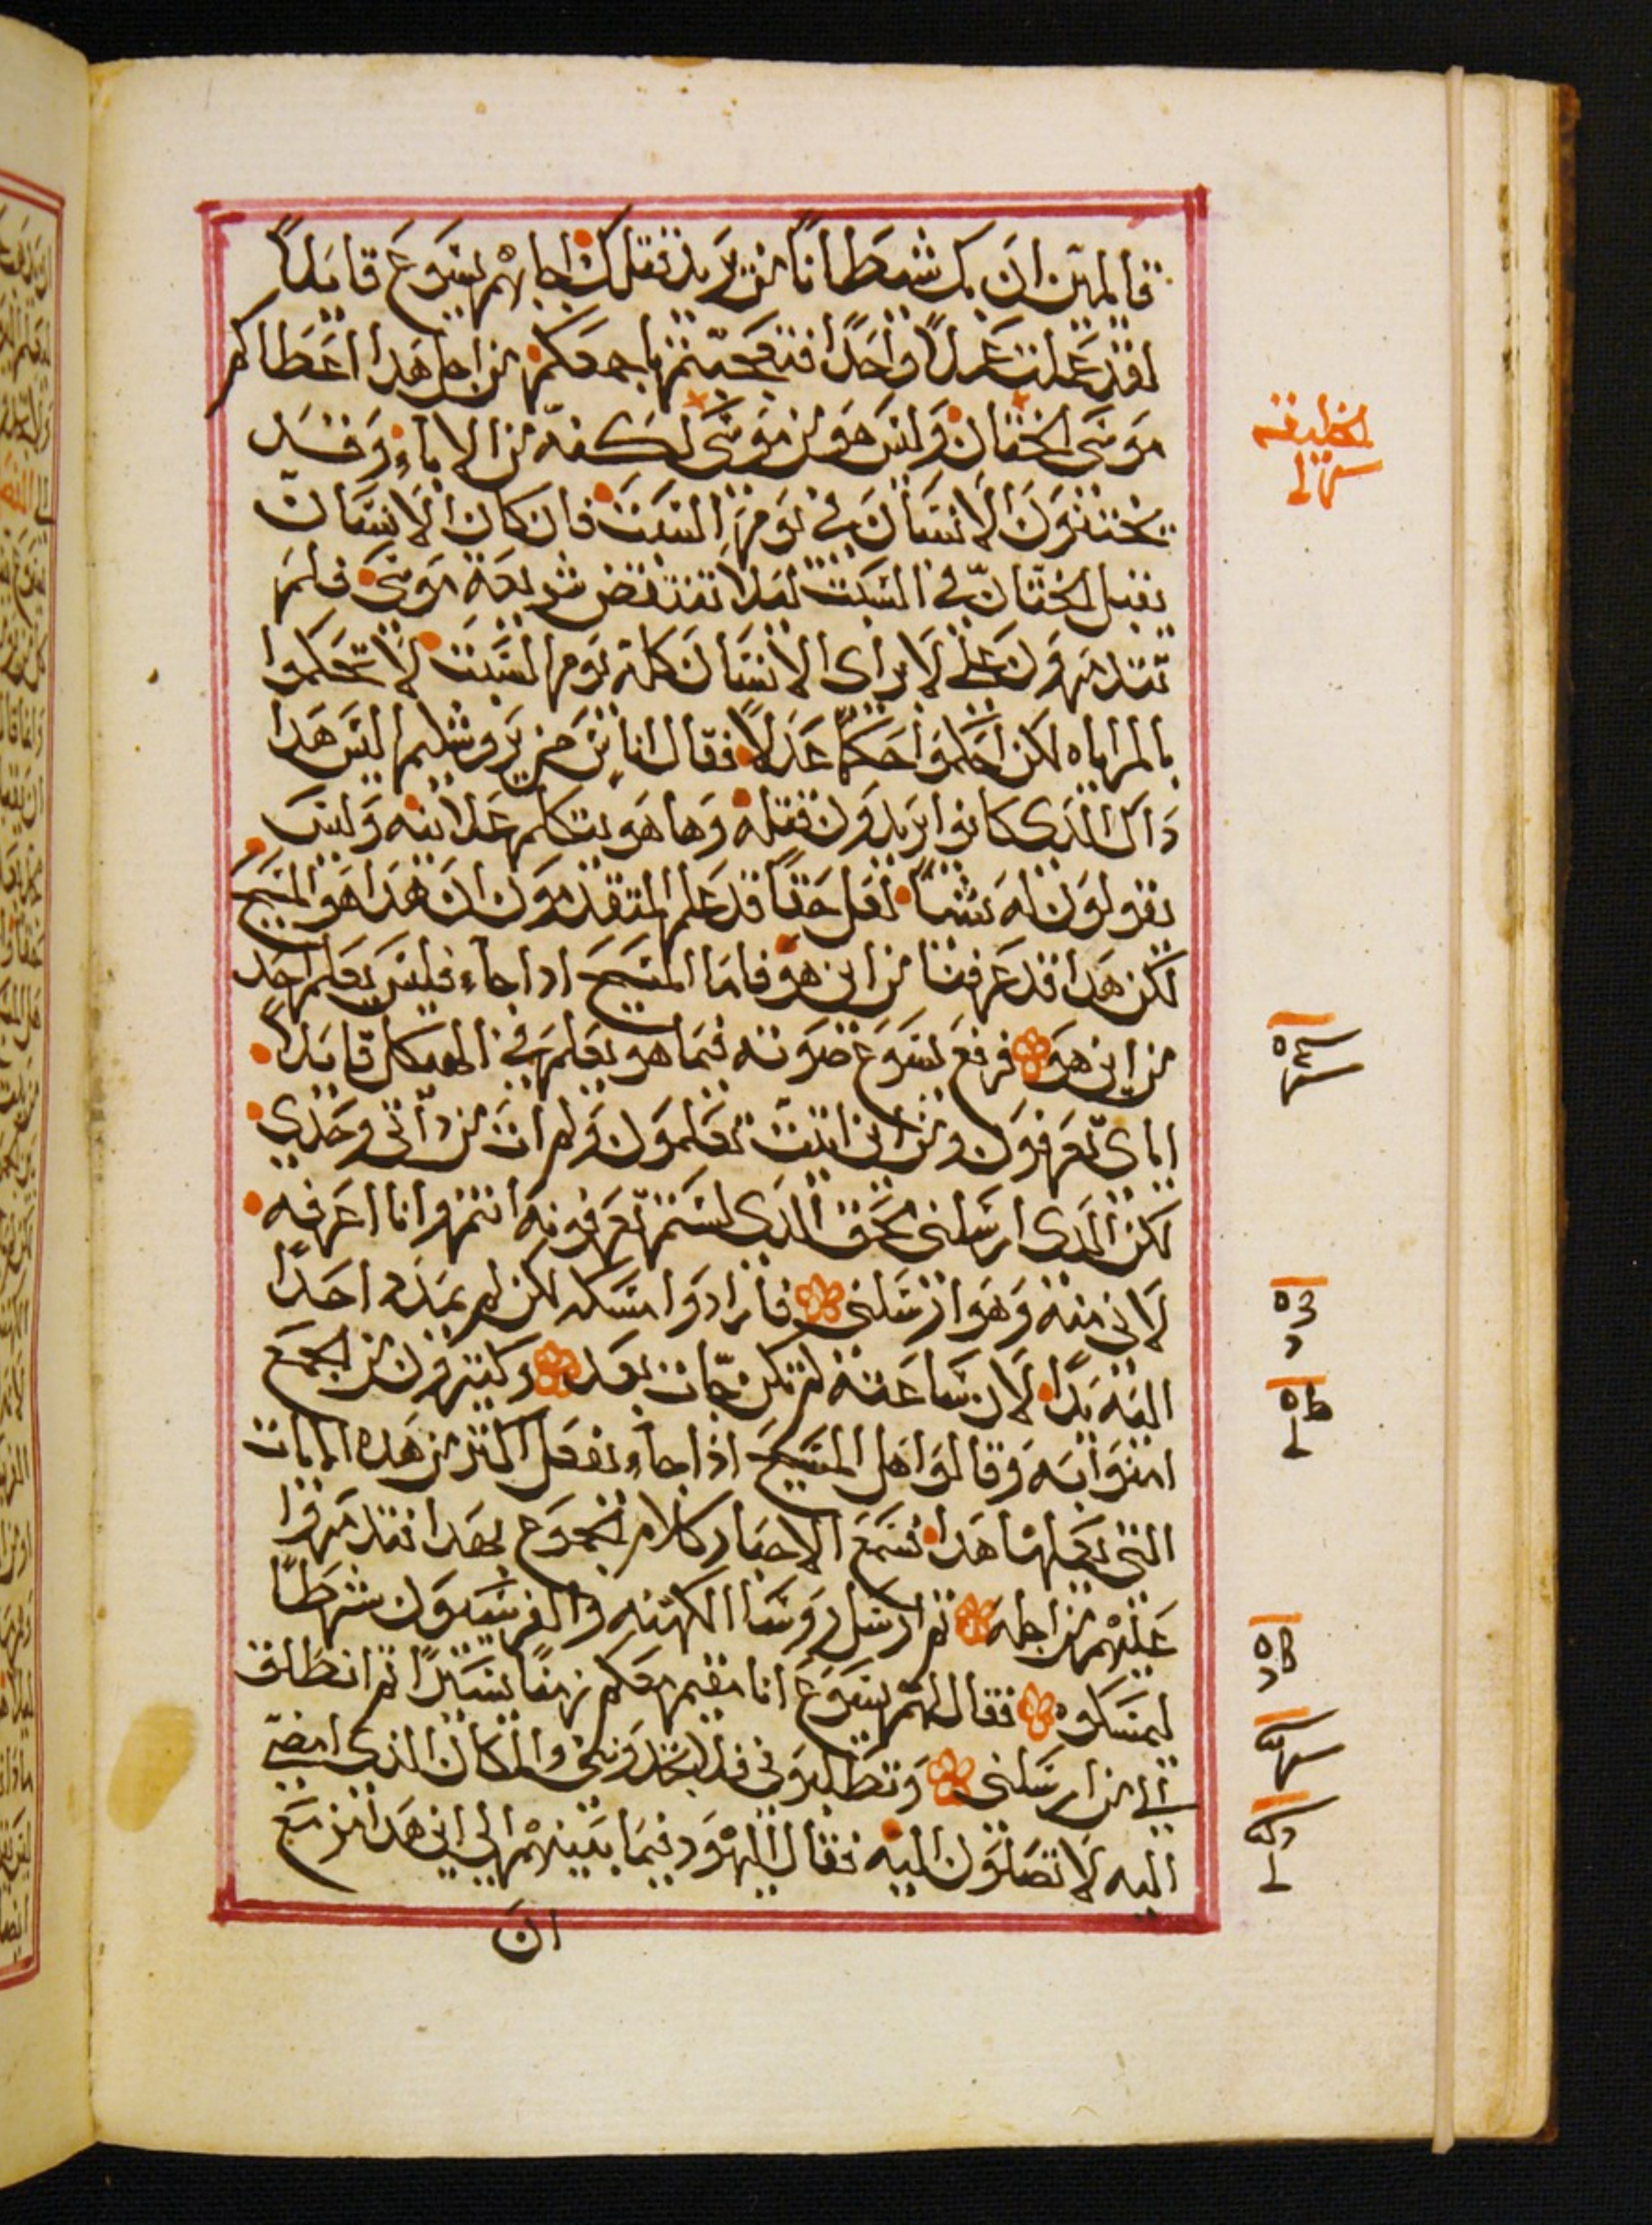 قايلين ان بك شيطانا من يريد قتلك اجابهم يسوع قايلاً
لقد عملت عملاً واحدًا فتعجبتم باجمعكم من اجل هدا اعطاكم
موسى الختان وليس هو من موسى لكنه من الاباء وقد
يختنون الانسان في يوم السبت فان كان الانسان
يقبل الختان في السبت ليلا تنتقض شريعة موسى فلم
تتذمرون علي لابراى الانسان كله يوم السبت لا تحكموا
بالمراياه لكن احكموا حكمًا عدلاً فقال اناس من يروشليم اليس هدا
داك الذى كانوا يريدون قتله وها هو يتكلم علانيه وليس
يقولون له شيًا لعل حقًا قد علم المتقدمون ان هدا هو المسيح
لكن هدا قد عرفنا من اين هو فاما المسيح ادا جاء فليس يعلم احد
من اين هو فرفع يسوع صوته فيما هو يعلم في الهيكل قايلاً
اياى تعرفون ومن اين اتيت تعلمون ولم ات من داتى وحدي
لكن الدى ارسلنى محق الدى لستم تعرفونه انتم وانا اعرفه
لانى منه وهو ارسلنى فارادوا مسكه لكن لم يمد احدًا
اليه يدًا لان ساعته لم تكن جات بعد وكثيرون من الجمع
امنوا به وقالوا هل المسيح اذا جاء يفعل اكثر من هده الايات
التى يعملها هدا فسمع الاحبار كلام الجموع بهدا تقدمروا
عليهم من اجله ثم ارسل روسا الكهنه والفريسيون شرطًا
ليمسكوه فقال لهم يسوع انا مقيم معكم زمنًا يسيرًا ثم انطلق
الي من ارسلنى وتطلبونى فلا تجدوننى والمكان الذى امضي
اليه لا تصلون اليه فقال اليهود فيما بينهم الي اين هدا مزمع
ان